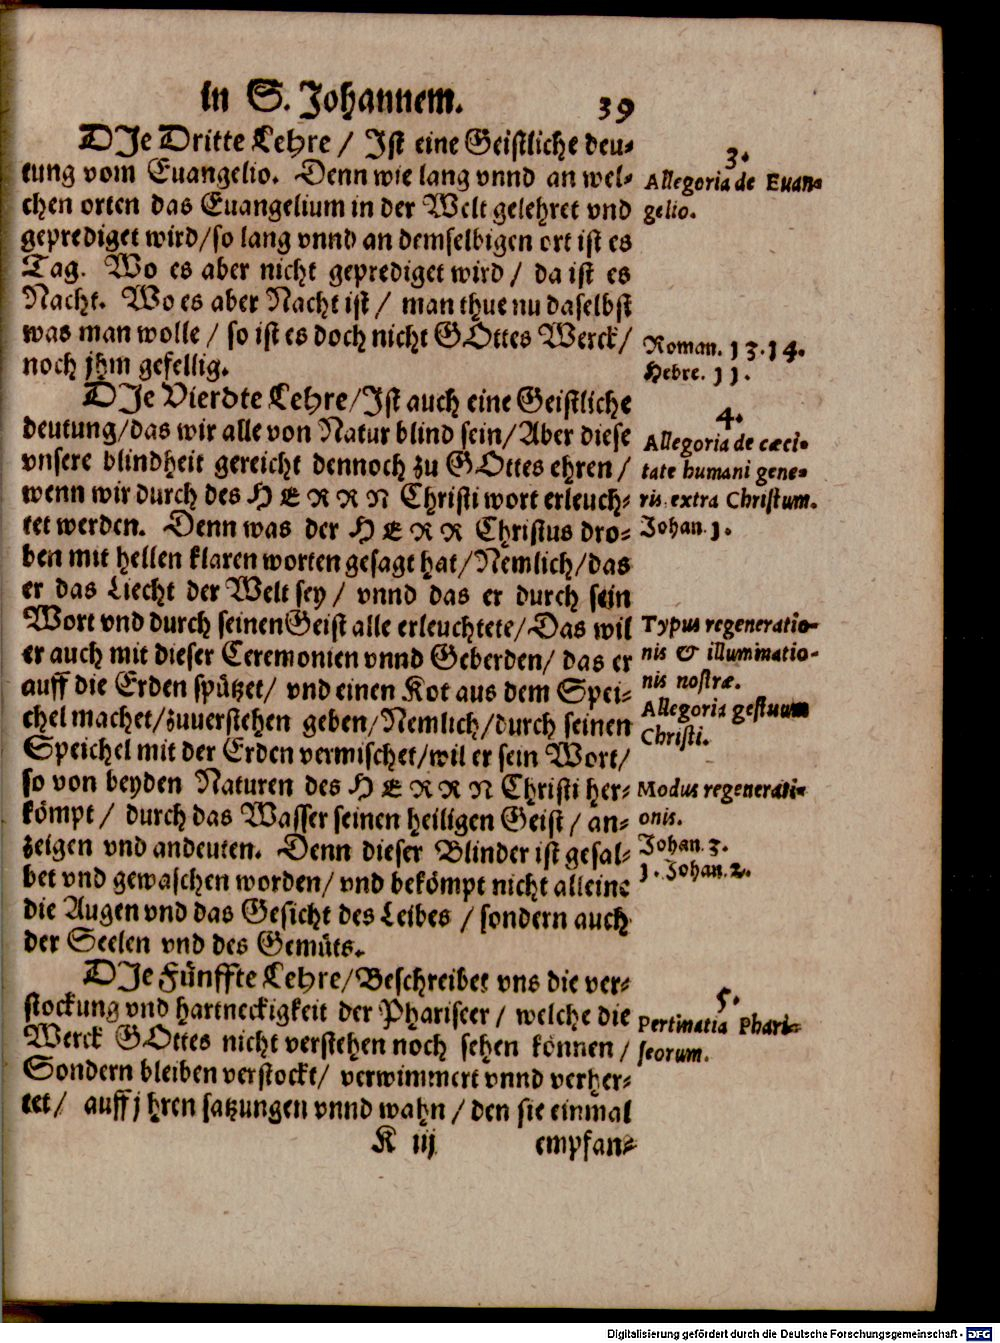 in S. Johannem. 39
DJe Dritte Lehre / Jst eine Geistliche deu-
tung vom Euangelio. Denn wie lang vnnd an wel-
chen orten das Euangelium in der Welt gelehret vnd
geprediget wird/so lang vnnd an demselbigen ort ist es
Tag. Wo es aber nicht geprediget wird / da ist es
Nacht. Wo es aber Nacht ist / man thue nu daselbst
was man wolle / so ist es doch nicht GOttes Werck/
noch jhm gefellig.
3.
Allegoria de Euan-
gelio.
Roman. 13.14.
Hebre. 11.
DJe Vierdte Lehre/Jst auch eine Geistliche
deutung/das wir alle von Natur blind sein/Aber diese
vnsere blindheit gereicht dennoch zu GOttes ehren /
wenn wir durch des HERRN Christi wort erleuch-
tet werden. Denn was der HERR Christus dro-
ben mit hellen klaren worten gesagt hat/Nemlich/das
er das Liecht der Welt sey / vnnd das er durch sein
Wort vnd durch seinen Geist alle erleuchtete/Das wil
er auch mit dieser Ceremonien vnnd Geberden/ das er
auff die Erden spützet/ vnd einen Kot aus dem Spei-
chel machet/zuuerstehen geben/Nemlich/durch seinen
Speichel mit der Erden vermischet/wil er sein Wort/
so von beyden Naturen des HERRN Christi her-
kömpt / durch das Wasser seinen heiligen Geist / an-
zeigen vnd andeuten. Denn dieser Blinder ist gesal-
bet vnd gewaschen worden/ vnd bekömpt nicht alleine
die Augen vnd das Gesicht des Leibes / sondern auch
der Seelen vnd des Gemüts.
4.
Allegoria de cæci-
tate humani gene-
ris extra Christum.
Johan. 1.
Typus regeneratio-
nis & illuminatio-
nis nostræ.
Allegoria gestuum
Christi.
Modus regenerati-
onis.
Johan. 3.
1. Johan. 2.
DJe Fünffte Lehre/Beschreibet vns die ver-
stockung vnd hartneckigkeit der Phariseer / welche die
Werck GOttes nicht verstehen noch sehen können /
Sondern bleiben verstockt/ verwimmert vnnd verher-
tet/ auff jhren satzungen vnnd wahn / den sie einmal
5.
Pertinatia Phari-
seorum.
K iij empfan-
Digitalisierung gefördert durch die Deutsche Forschungsgemeinschaft - DFG